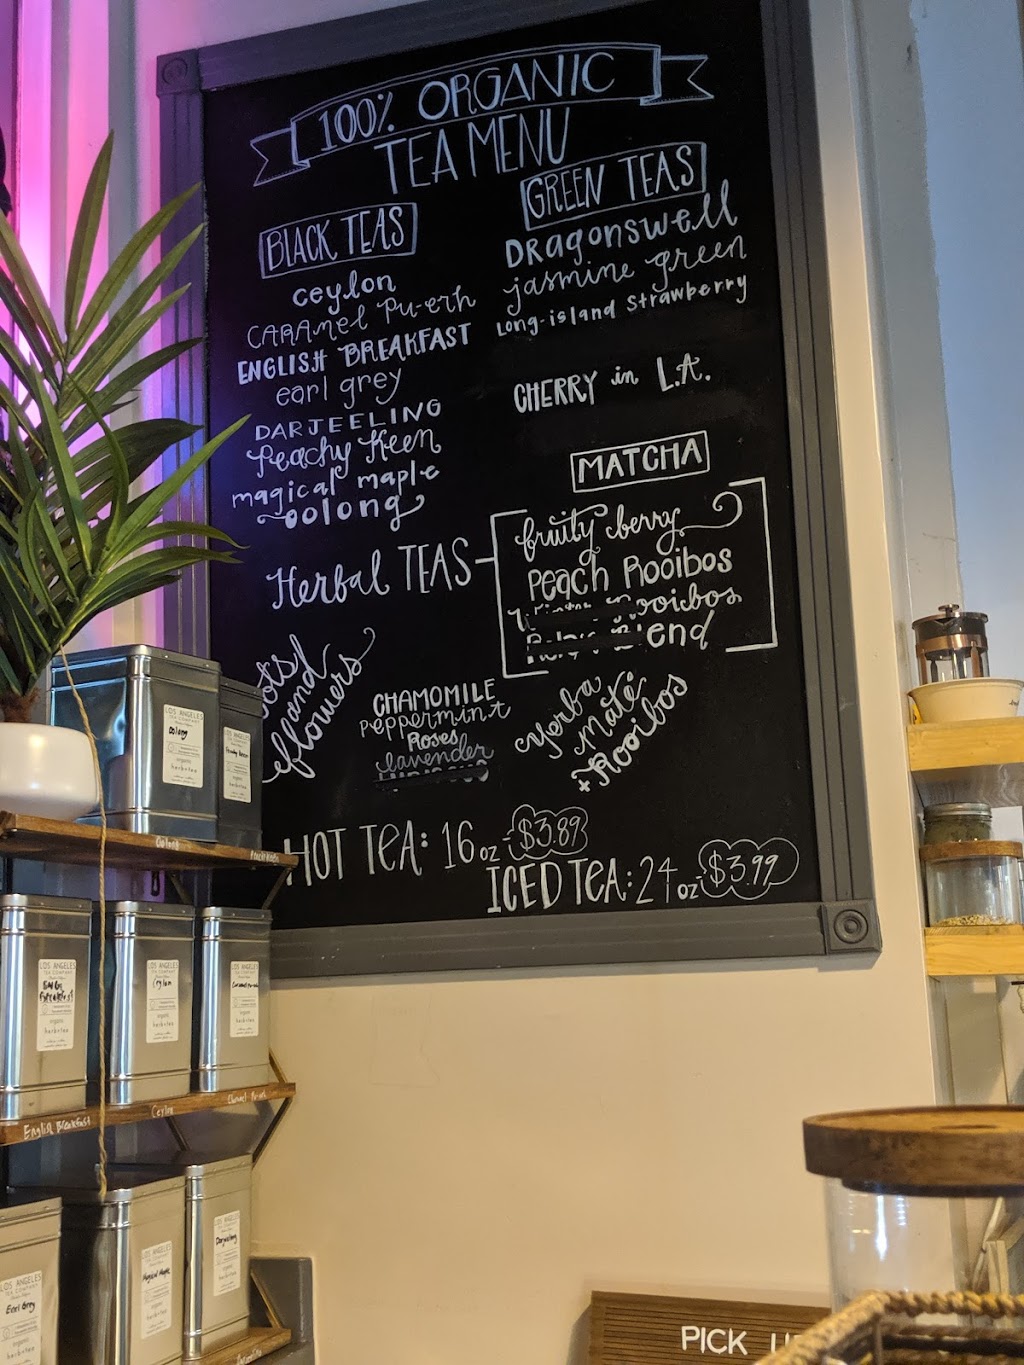 100% ORGANIC
TEA MENU
BLACK TEAS
ceylon
CARAMEL Pu-erh
ENGLISH BREAKFAST
earl grey
DARJEELING
Peachy Keen
magical maple
oolong
GREEN TEAS
DRAgonswell
jasmine green
Long-island Strawberry
CHERRY in L.A.
MATCHA
Herbal TEAS
fruity berry
PEACH Rooibos
Rooibos
Blend
and
flowers
CHAMOMILE
peppermint
Roses
lavender
Yerba
maté
+ Rooibos
HOT TEA: 16 oz - $3.89
ICED TEA: 24 oz - $3.99
LOS ANGELES
TEA COMPANY
Oolong
organic
herb+tea
Peachy Keen
organic
herb+tea
Oolong
LOS ANGELES
TEA COMPANY
English
Breakfast
organic
herb+tea
LOS ANGELES
TEA COMPANY
Ceylon
organic
herb+tea
LOS ANGELES
TEA COMPANY
Caramel Pu-erh
organic
herb+tea
English Breakfast
Ceylon
Caramel Pu-erh
LOS ANGELES
TEA COMPANY
Earl Grey
organic
herb+tea
LOS ANGELES
TEA COMPANY
Magical Maple
organic
herb+tea
LOS ANGELES
TEA COMPANY
Darjeeling
organic
herb+tea
PICK U